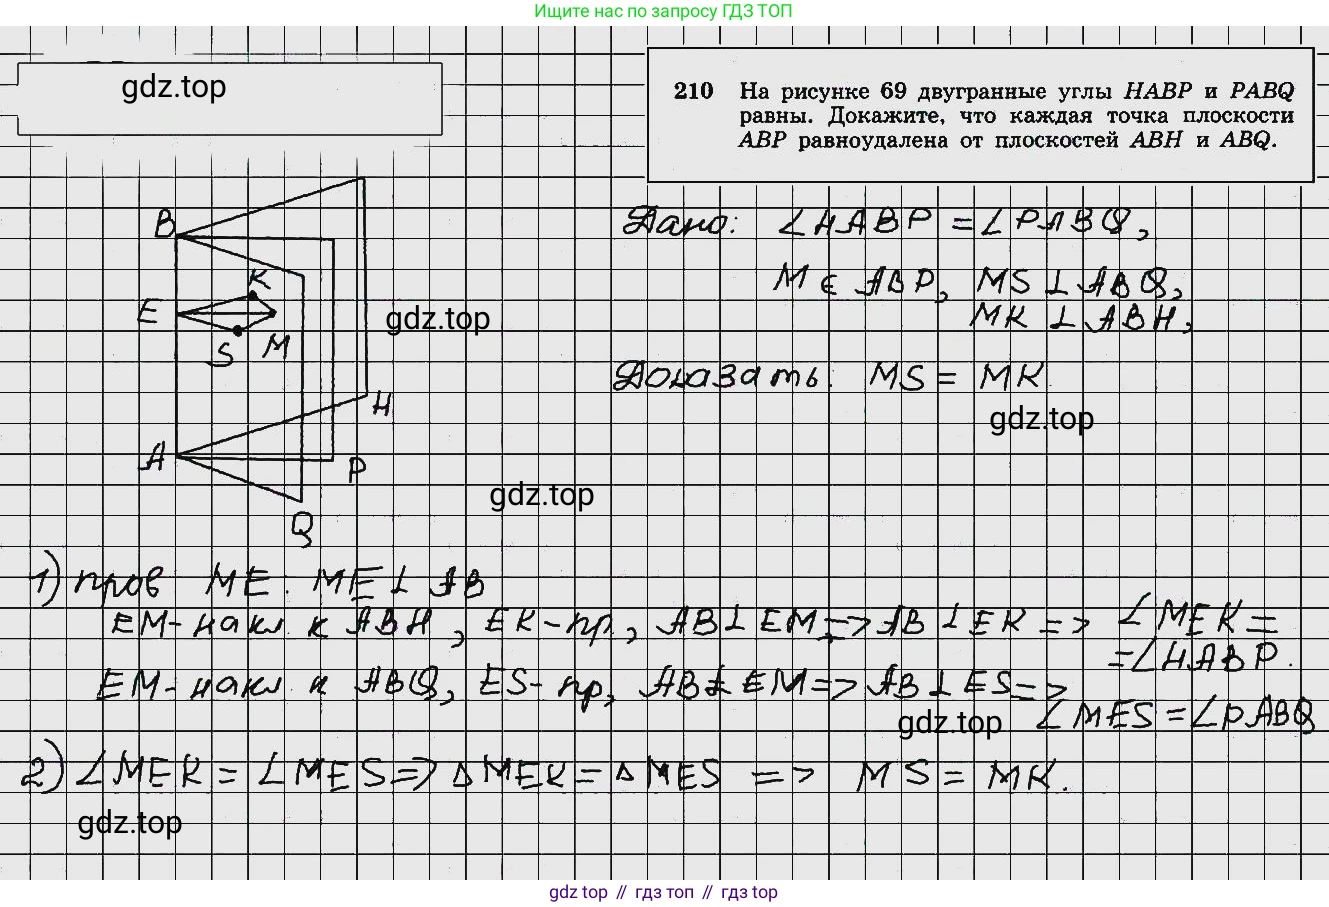 Ищите нас по запросу ГДЗ ТОП
gdz.top
210 На рисунке 69 двугранные углы HABP и PABQ
равны. Докажите, что каждая точка плоскости
ABP равноудалена от плоскостей ABH и ABQ.
B
K
E
S
M
A
H
P
Q
gdz.top
Дано: ∠HABP = ∠PABQ,
M ∈ ABP, MS ⊥ ABQ,
MK ⊥ ABH,
Доказать: MS = MK
gdz.top
gdz.top
1) пров ME: ME ⊥ AB
EM-накл к ABH, EK-пр, AB ⊥ EM => AB ⊥ EK => ∠MEK =
= ∠HABP.
EM-накл к ABQ, ES-пр, AB ⊥ EM => AB ⊥ ES =>
∠MES = ∠PABQ
gdz.top
2) ∠MEK = ∠MES => △MEK = △MES => MS = MK.
gdz.top
gdz top // гдз топ // гдз top